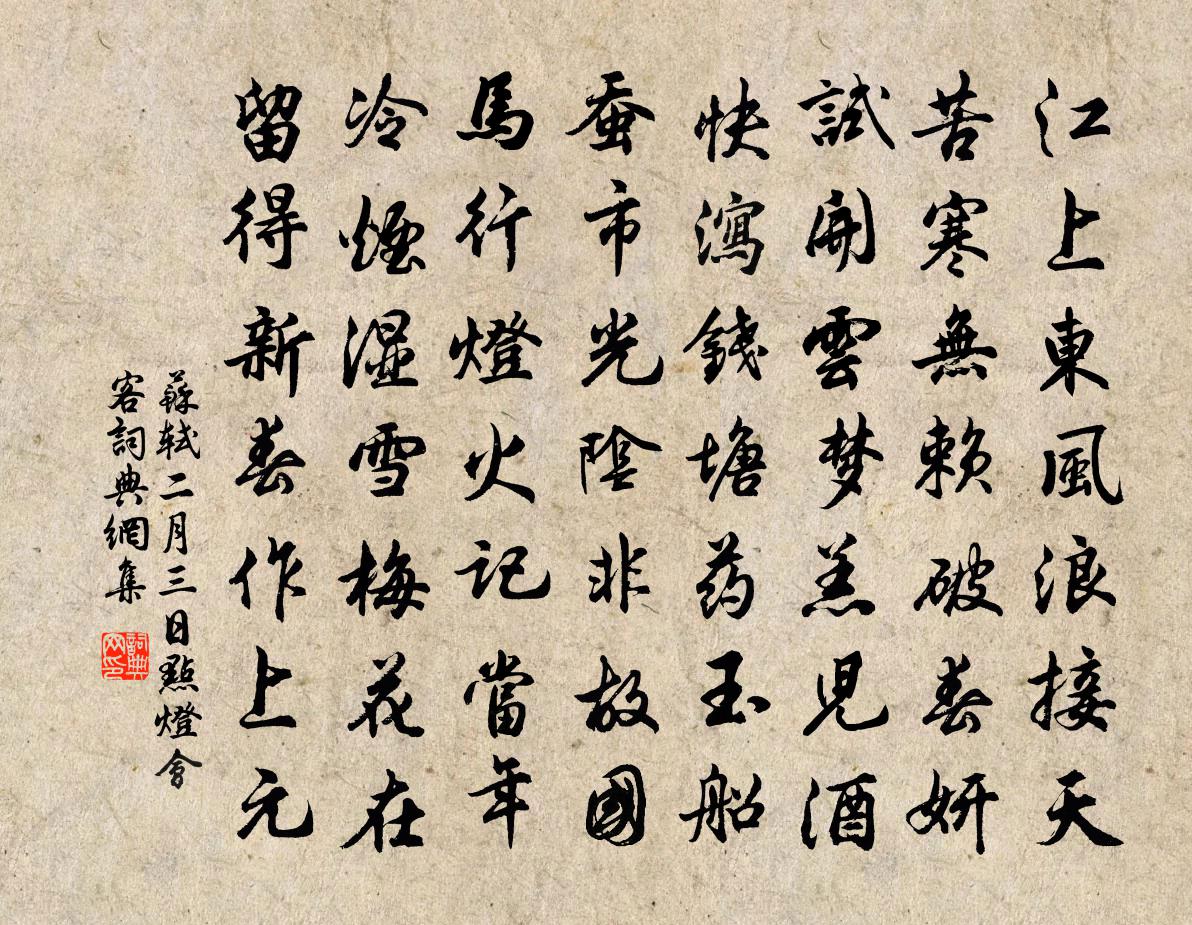 江上東風浪接天
苦寒無賴破春妍
試開雲夢羔兒酒
快瀉錢塘药玉船
蚕市光陰非故國
馬行燈火記當年
冷煙湿雪梅花在
留得新春作上元
蘇軾二月三日點燈會
客詞典網集
詞典网印